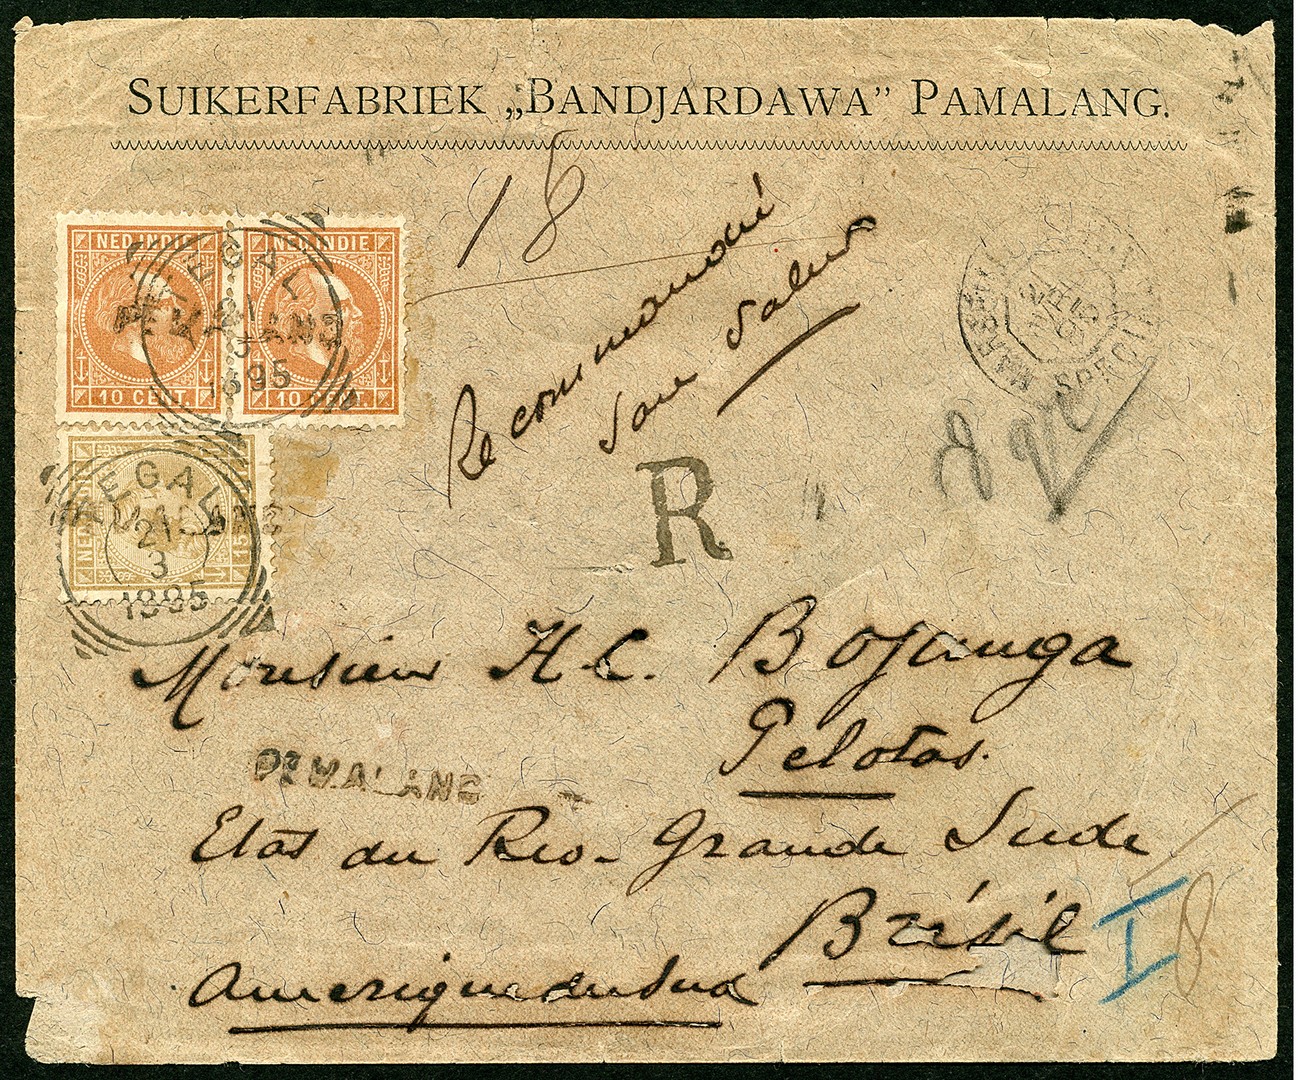 SUIKERFABRIEK „BANDJARDAWA” PAMALANG.
18
Recommandé
NED.INDIE
10 CENT.
NED.INDIE
10 CENT.
TEGAL
21
3
1895
NED
15
TEGAL
21
3
1895
MARSEILLE
R
Monsieur H. C. Bojunga
Pelotas.
PEMALANG
Etat du Rio-Grande Sude
Brésil
I 8
Amerique du Sud